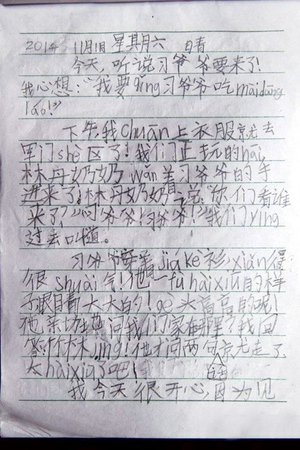 2014 11月1日 星其月六 日晴
今天,听说习爷爷要来了!
我心想:"我要qǐng习爷爷吃maidāng
láo!"
下午我chuān上衣服就去
军门shè区了!我们正玩的hāi,
林丹奶奶wǎn着习爷爷的手
进来了!林丹奶奶说:"你们看谁
来了?""习爷爷!习爷爷!"我们yíng
过去叫道。
习爷爷穿着jiákè衫xiǎn得
很shuài气!他一fù hǎixiá的样
子眼睛大大的!go头高高的呢!
他亲切地问我们家住哪里?我回
答
他才问两句就走了
太hǎixiá了吧!
我今天很开心,因为见